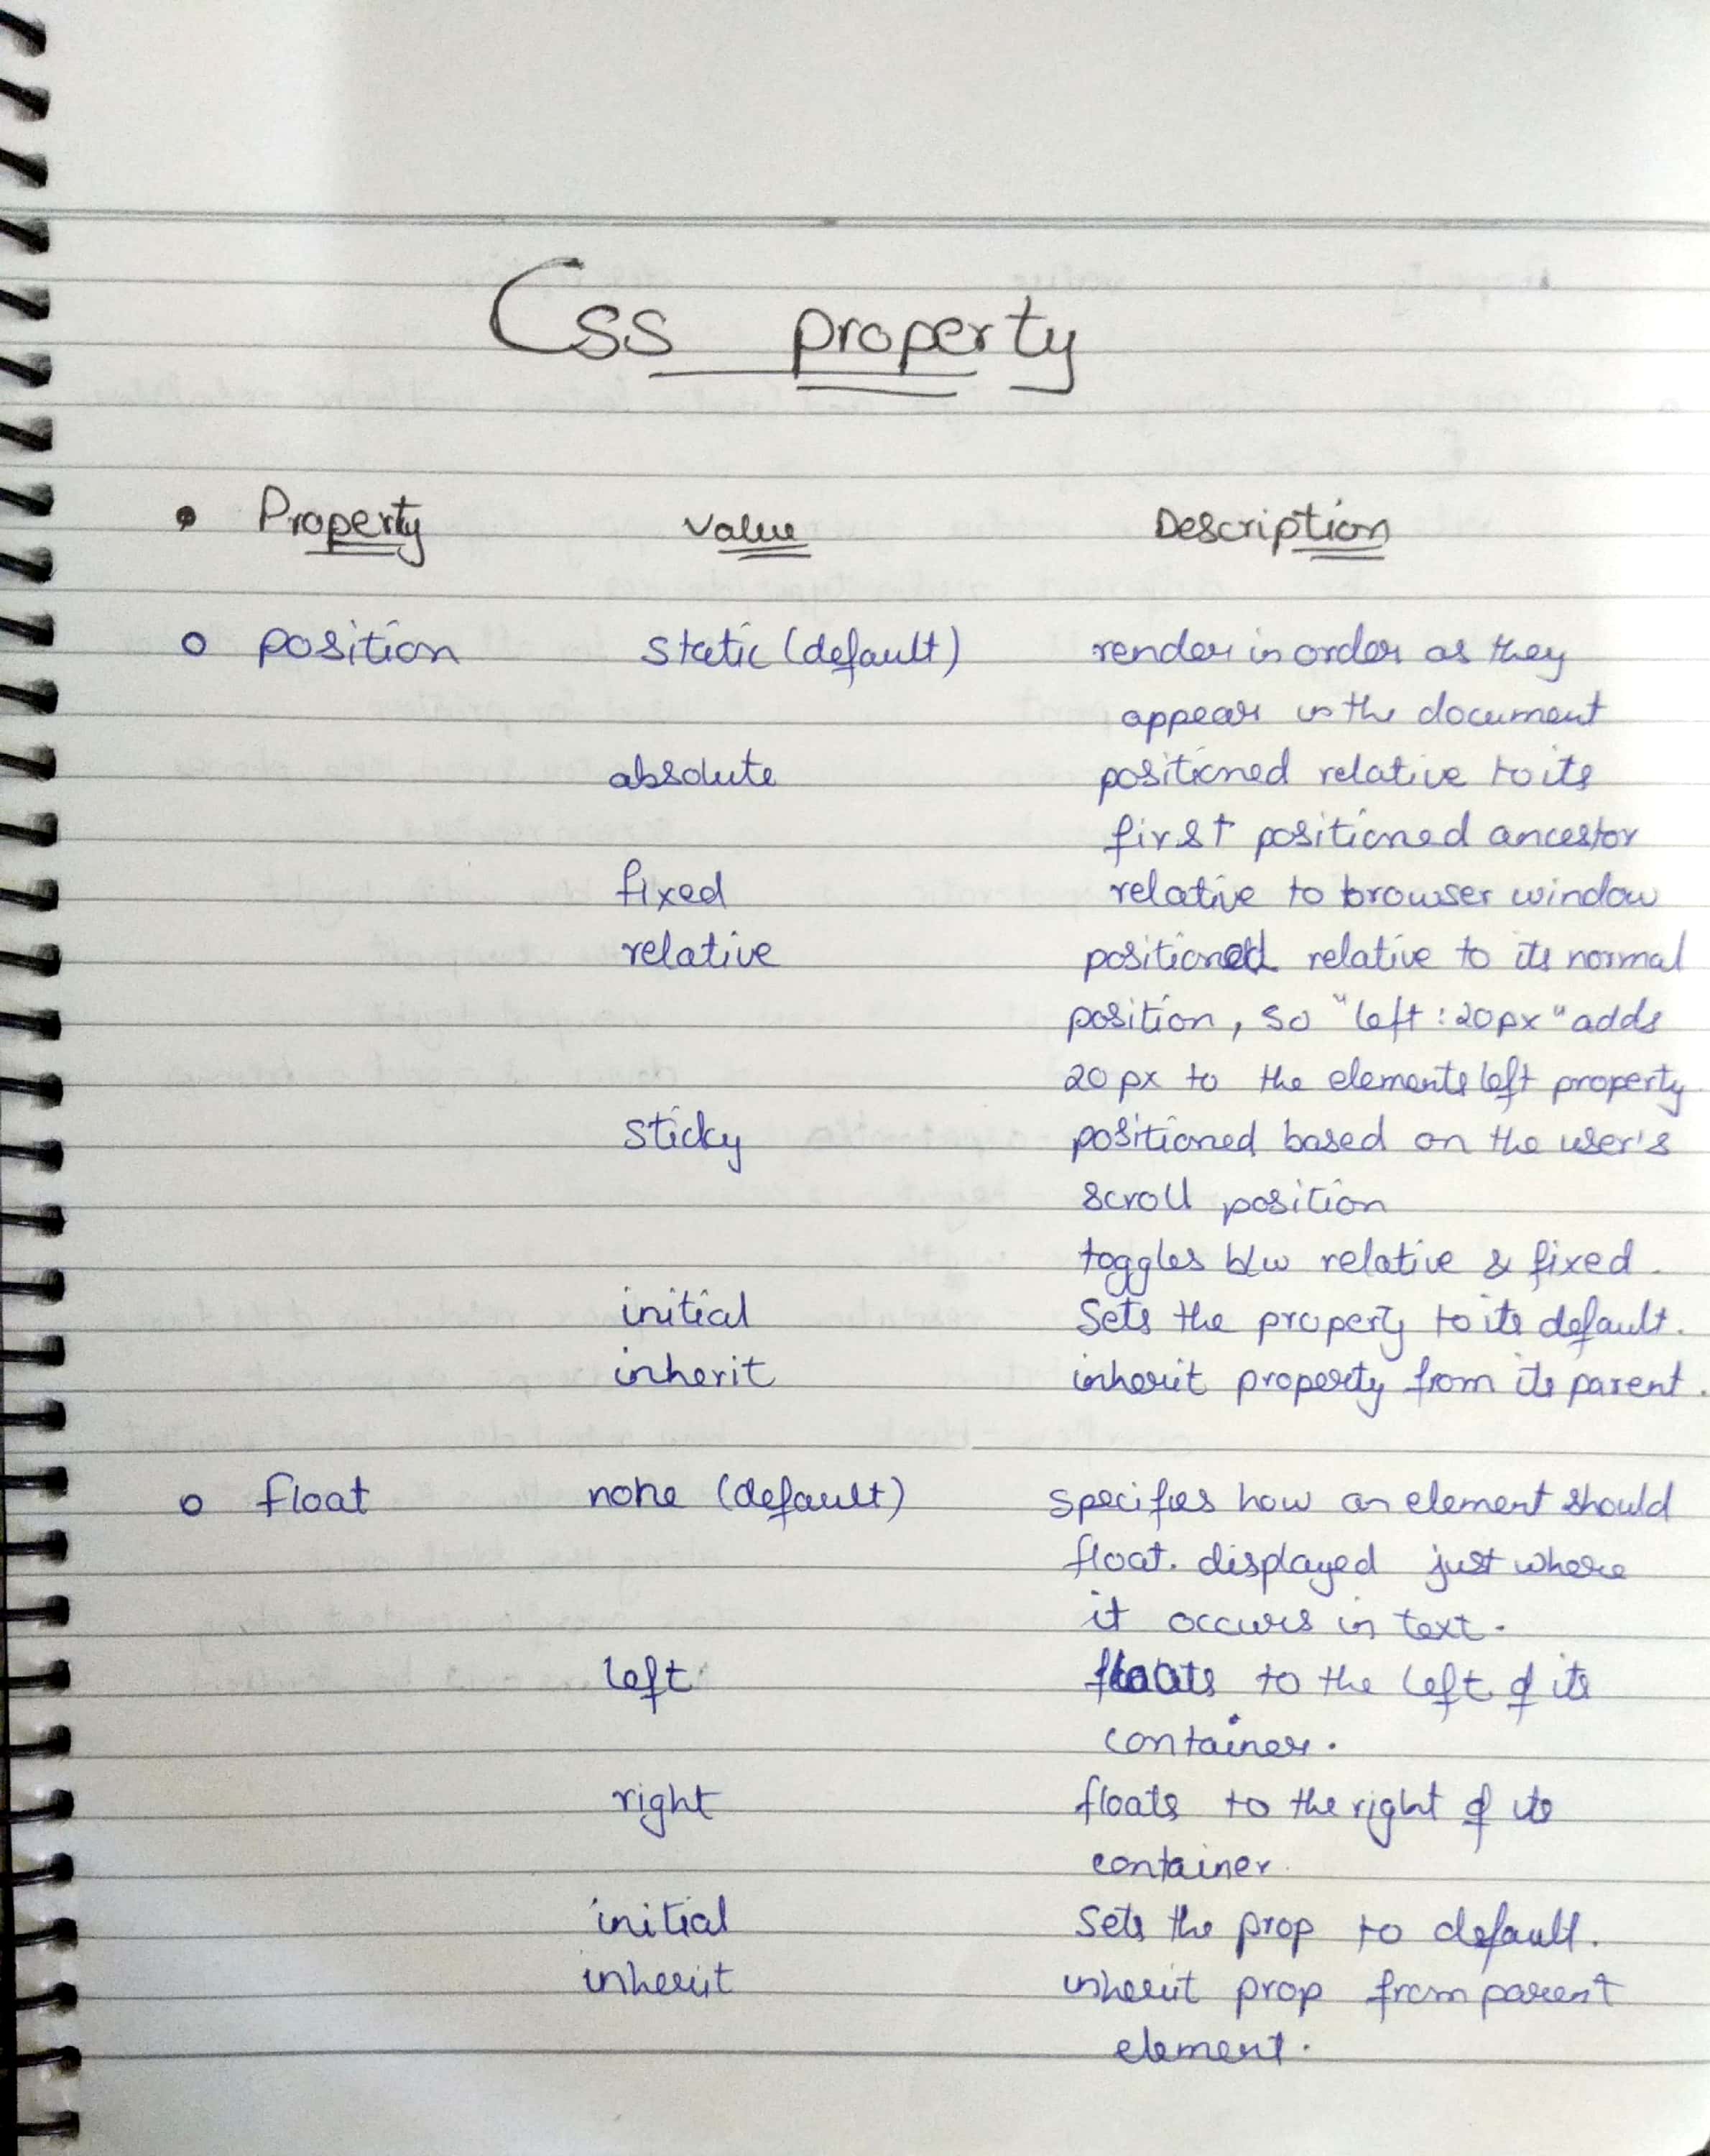 Css property
• Property Value Description
o position static (default) render in order as they
appear in the document
absolute positioned relative to its
first positioned ancestor
fixed relative to browser window
relative positioned relative to its normal
position, so "left:20px" adds
20px to the elements left property
sticky positioned based on the user's
scroll position
toggles b/w relative & fixed.
initial Sets the property to its default.
inherit inherit property from its parent.
o float none (default) specifies how an element should
float. displayed just where
it occurs in text.
left floats to the left of its
container.
right floats to the right of its
container.
initial Sets the prop to default.
inherit inherit prop from parent
element.